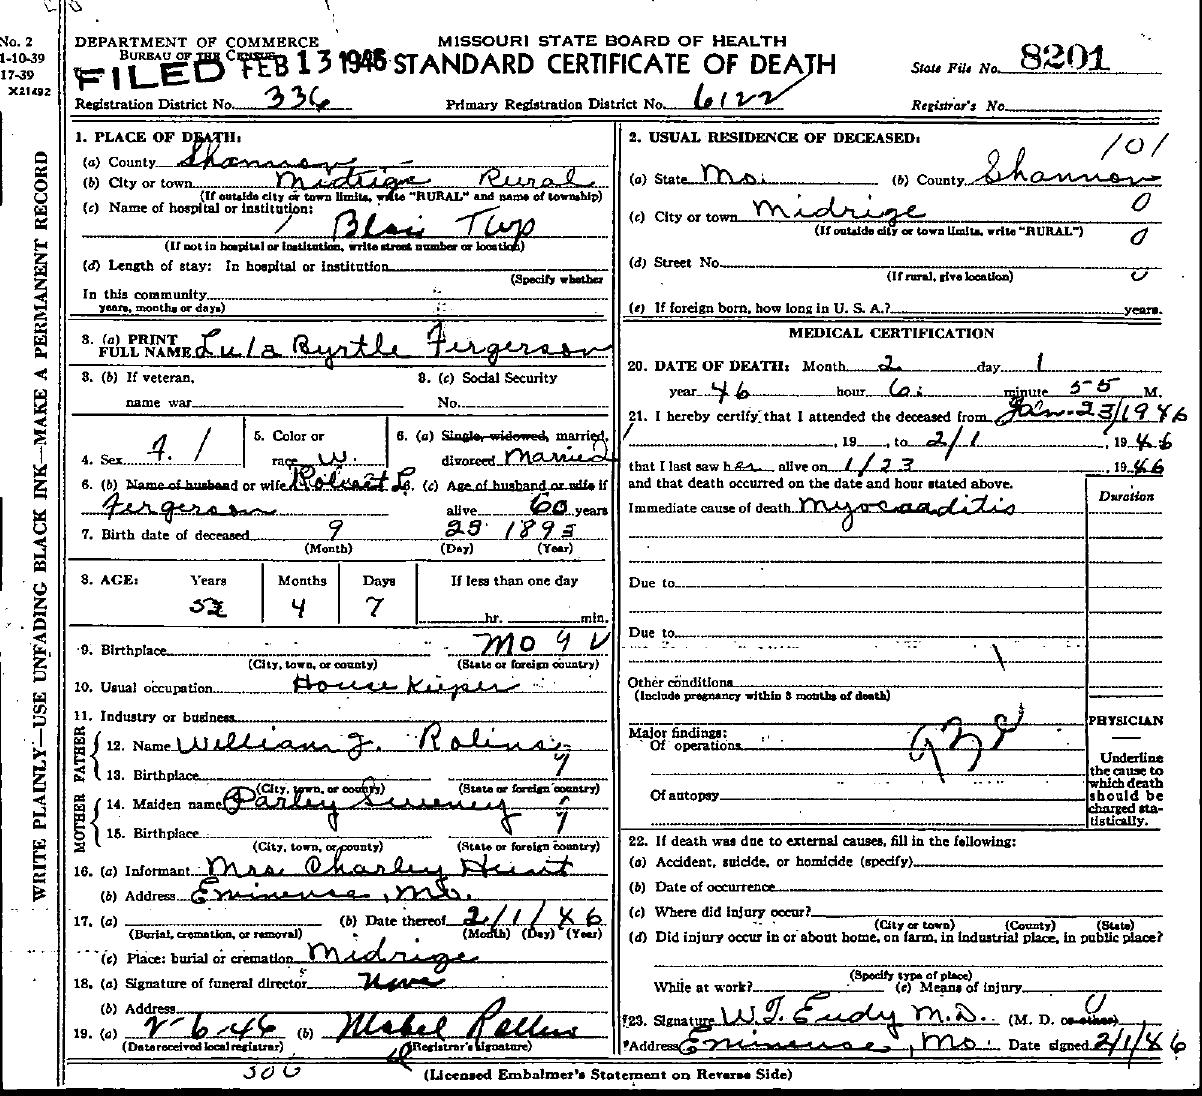 No. 2
1-10-39
17-39
X21492
WRITE PLAINLY—USE UNFADING BLACK INK—MAKE A PERMANENT RECORD
DEPARTMENT OF COMMERCE
BUREAU OF THE CENSUS
FILED FEB 13 1946
MISSOURI STATE BOARD OF HEALTH
STANDARD CERTIFICATE OF DEATH
State File No. 8201
Registration District No. 336
Primary Registration District No. 6122
Registrar's No.
1. PLACE OF DEATH:
(a) County Shannon
(b) City or town Midrige Rural
(If outside city or town limits, write "RURAL" and name of township)
(c) Name of hospital or institution:
Blair Twp
(If not in hospital or institution, write street number or location)
(d) Length of stay: In hospital or institution
(Specify whether
In this community
years, months or days)
3. (a) PRINT
FULL NAME Lula Byrtle Fergerson
3. (b) If veteran,
name war
3. (c) Social Security
No.
4. Sex F. 1
5. Color or
race W.
6. (a) Single, widowed, married,
divorced Married
6. (b) Name of husband or wife Robert L.
Fergerson
6. (c) Age of husband or wife if
alive 60 years
7. Birth date of deceased 9 25 1893
(Month) (Day) (Year)
8. AGE: Years Months Days If less than one day
52 4 7 hr. min.
9. Birthplace Mo 9 V
(City, town, or county) (State or foreign country)
10. Usual occupation House Keeper
11. Industry or business
FATHER
12. Name William J. Rolins
13. Birthplace 9
(City, town, or county) (State or foreign country)
MOTHER
14. Maiden name Parley Sweney
15. Birthplace 9
(City, town, or county) (State or foreign country)
16. (a) Informant Mrs. Charley Hunt
(b) Address Eminense, Mo.
17. (a) (b) Date thereof 2/1/46
(Burial, cremation, or removal) (Month) (Day) (Year)
(c) Place: burial or cremation Midrige
18. (a) Signature of funeral director None
(b) Address
19. (a) 2-6-46 (b) Mabel Rollins
(Date received local registrar) (Registrar's signature)
306
(Licensed Embalmer's Statement on Reverse Side)
2. USUAL RESIDENCE OF DECEASED:
101
(a) State Mo. (b) County Shannon
(c) City or town Midrige 0
(If outside city or town limits, write "RURAL")
0
(d) Street No.
(If rural, give location) 0
(e) If foreign born, how long in U. S. A.? years.
MEDICAL CERTIFICATION
20. DATE OF DEATH: Month 2 day 1
year 46 hour 6: minute 55 M.
21. I hereby certify that I attended the deceased from Jan-23/1946
, 19 , to 2/1 , 1946
that I last saw her alive on 1/23 , 1946
and that death occurred on the date and hour stated above.
Duration
Immediate cause of death Myocaaditis
Due to
Due to
Other conditions
(Include pregnancy within 3 months of death)
Major findings:
Of operations
Of autopsy
PHYSICIAN
Underline
the cause to
which death
should be
charged sta-
tistically.
22. If death was due to external causes, fill in the following:
(a) Accident, suicide, or homicide (specify)
(b) Date of occurrence
(c) Where did injury occur?
(City or town) (County) (State)
(d) Did injury occur in or about home, on farm, in industrial place, in public place?
(Specify type of place)
While at work? (e) Means of injury
23. Signature W.T. Eudy M.D. (M. D. or other)
Address Eminense, Mo. Date signed 2/1/46